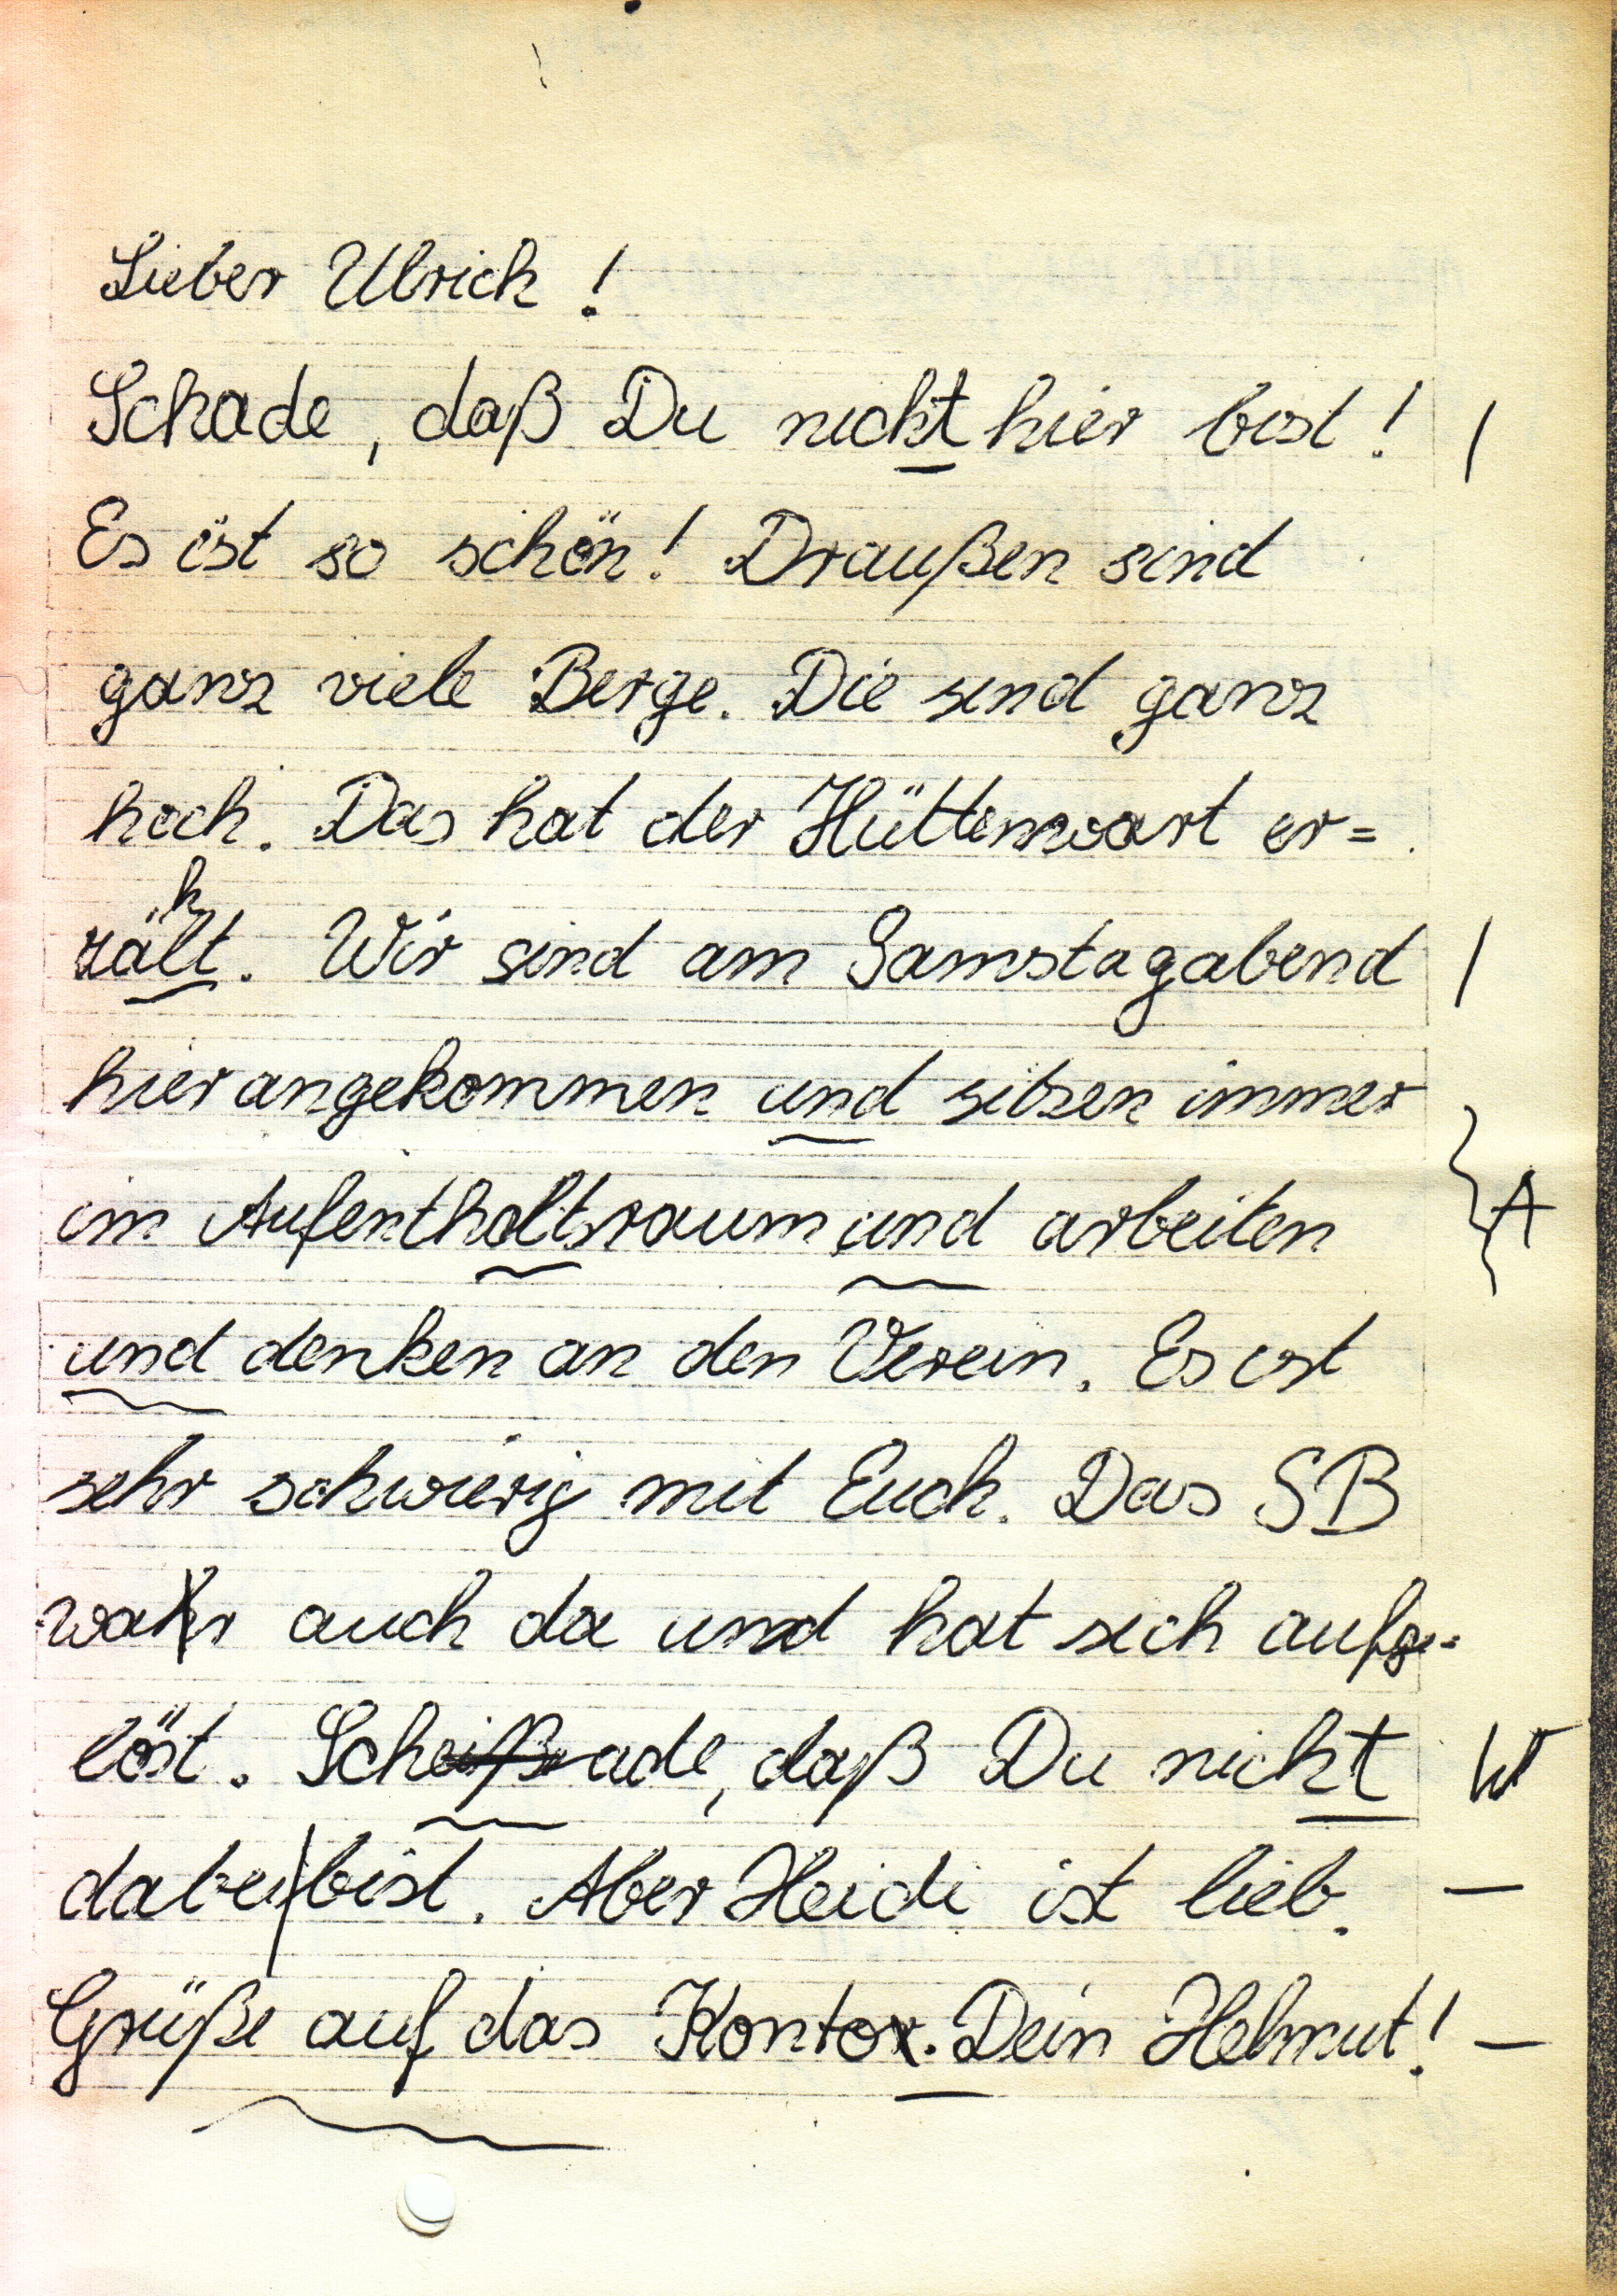 Lieber Ulrich!
Schade, daß Du nicht hier bist! |
Es ist so schön! Draußen sind
ganz viele Berge. Die sind ganz
hoch. Das hat der Hüttenwart er=
zählt. Wir sind am Samstagabend |
hier angekommen und sitzen immer
im Aufenthaltsraum und arbeiten A
und denken an den Verein. Es ist
sehr schwierig mit Euch. Das SB
war auch da und hat sich aufge=
löst. Scheißeade, daß Du nicht W
dabei|bist. Aber Heidi ist lieb. —
Grüße auf das Kontor. Dein Helmut! —